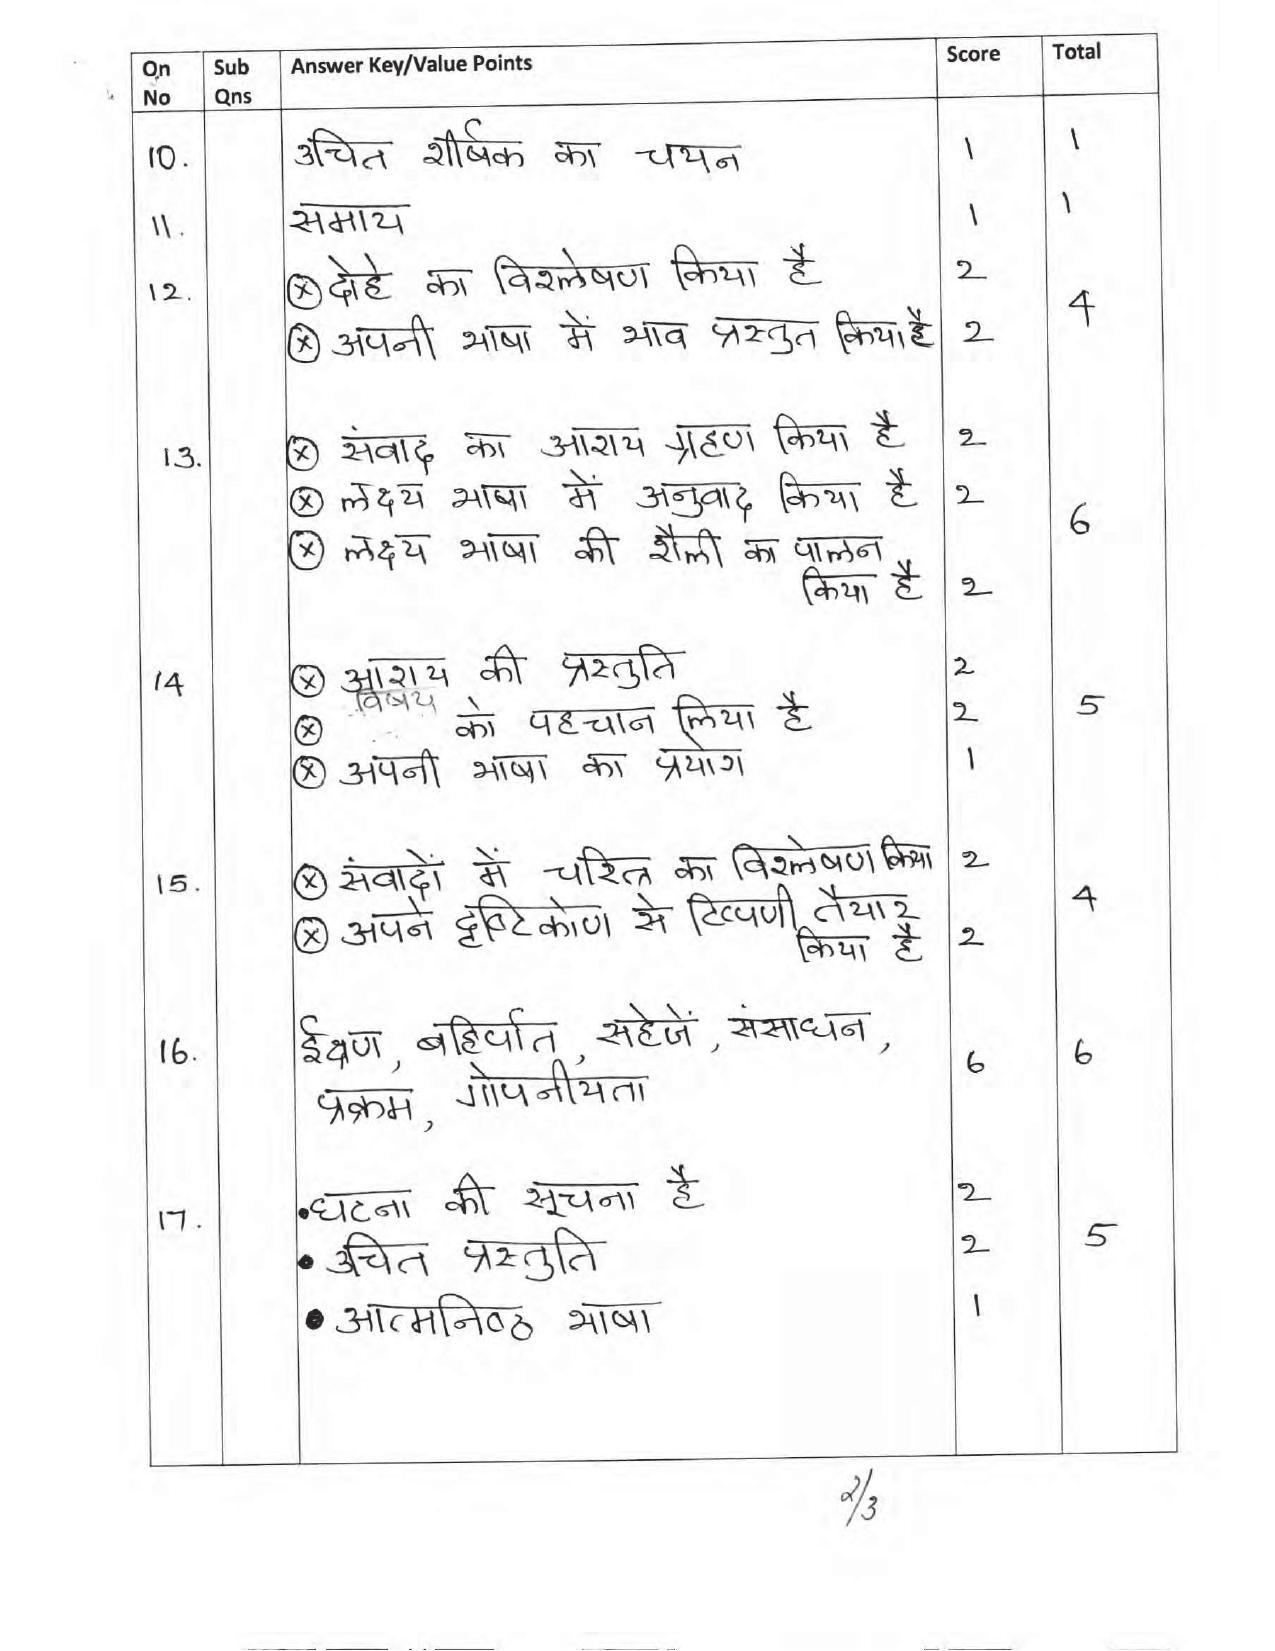 Qn No Sub Qns Answer Key/Value Points Score Total
10. उचित शीर्षक का चयन 1 1
11. समाय 1 1
12. ⊗ दोहे का विश्लेषण किया है 2
⊗ अपनी भाषा में भाव प्रस्तुत किया है 2 4
13. ⊗ संवाद का आशय ग्रहण किया है 2
⊗ लक्ष्य भाषा में अनुवाद किया है 2
6
⊗ लक्ष्य भाषा की शैली का पालन
किया है 2
14 ⊗ आशय की प्रस्तुति 2
⊗ विषय को पहचान लिया है 2 5
⊗ अपनी भाषा का प्रयोग 1
15. ⊗ संवादों में चरित्र का विश्लेषण किया 2
4
⊗ अपने दृष्टिकोण से टिप्पणी तैयार
किया है 2
16. ईक्षण, बहिर्पात, सहेजें, संसाधन,
6 6
प्रक्रम, गोपनीयता
17. •घटना की सूचना है 2
• उचित प्रस्तुति 2 5
• आत्मनिष्ठ भाषा 1
2/3